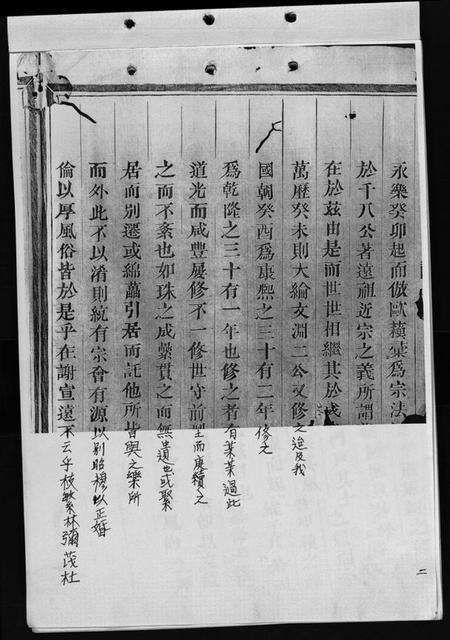 永樂癸卯起而倣歐橫葉爲宗法
於千八公著遠祖近宗之義所謂
在於茲由是而世世相繼其於
萬曆癸未則大綸文淵二公又修之迨及我
國朝癸酉爲康熙之三十有二年修之
爲乾隆之三十有一年也修之者有某某過此
道光而咸豐屢修不一修世守前型而庚續之
之而不紊也如珠之成縈貫之而無遺也或聚
居而別遷或綿蕞引居而託他所皆與之樂所
而外此不以淆則統有宗會有源以別昭穆以正婚
倫以厚風俗皆於是乎在謝宣遠不云乎枝繁林彌茂杜
二